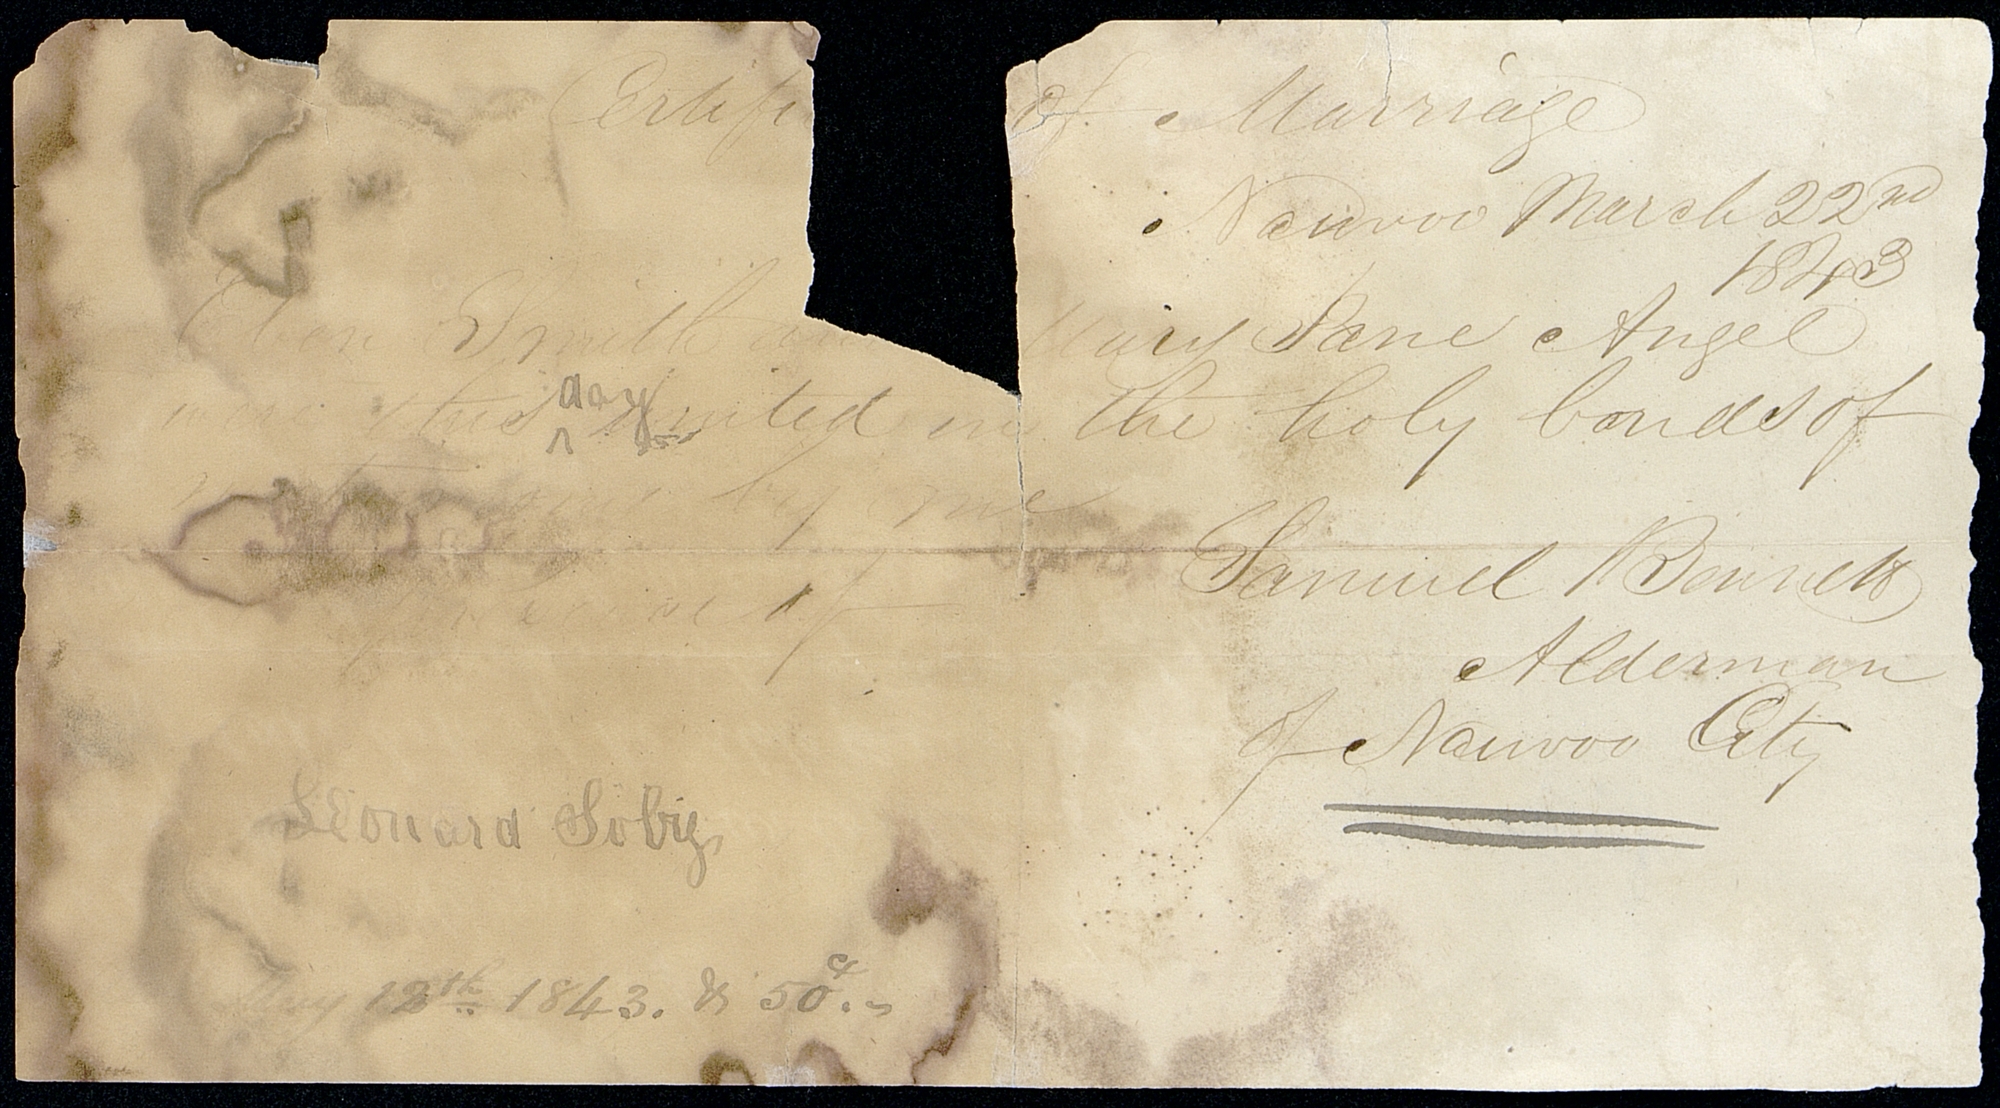 Certifi of Marriage
Nauvoo March 22nd
1843
Eben Smith and Mary Jane Angel
were this day united in the holy bonds of
by me
Samuel Bennett
presence of
Alderman
of Nauvoo City
Leonard Soby,
May 12th 1843. & 50c.